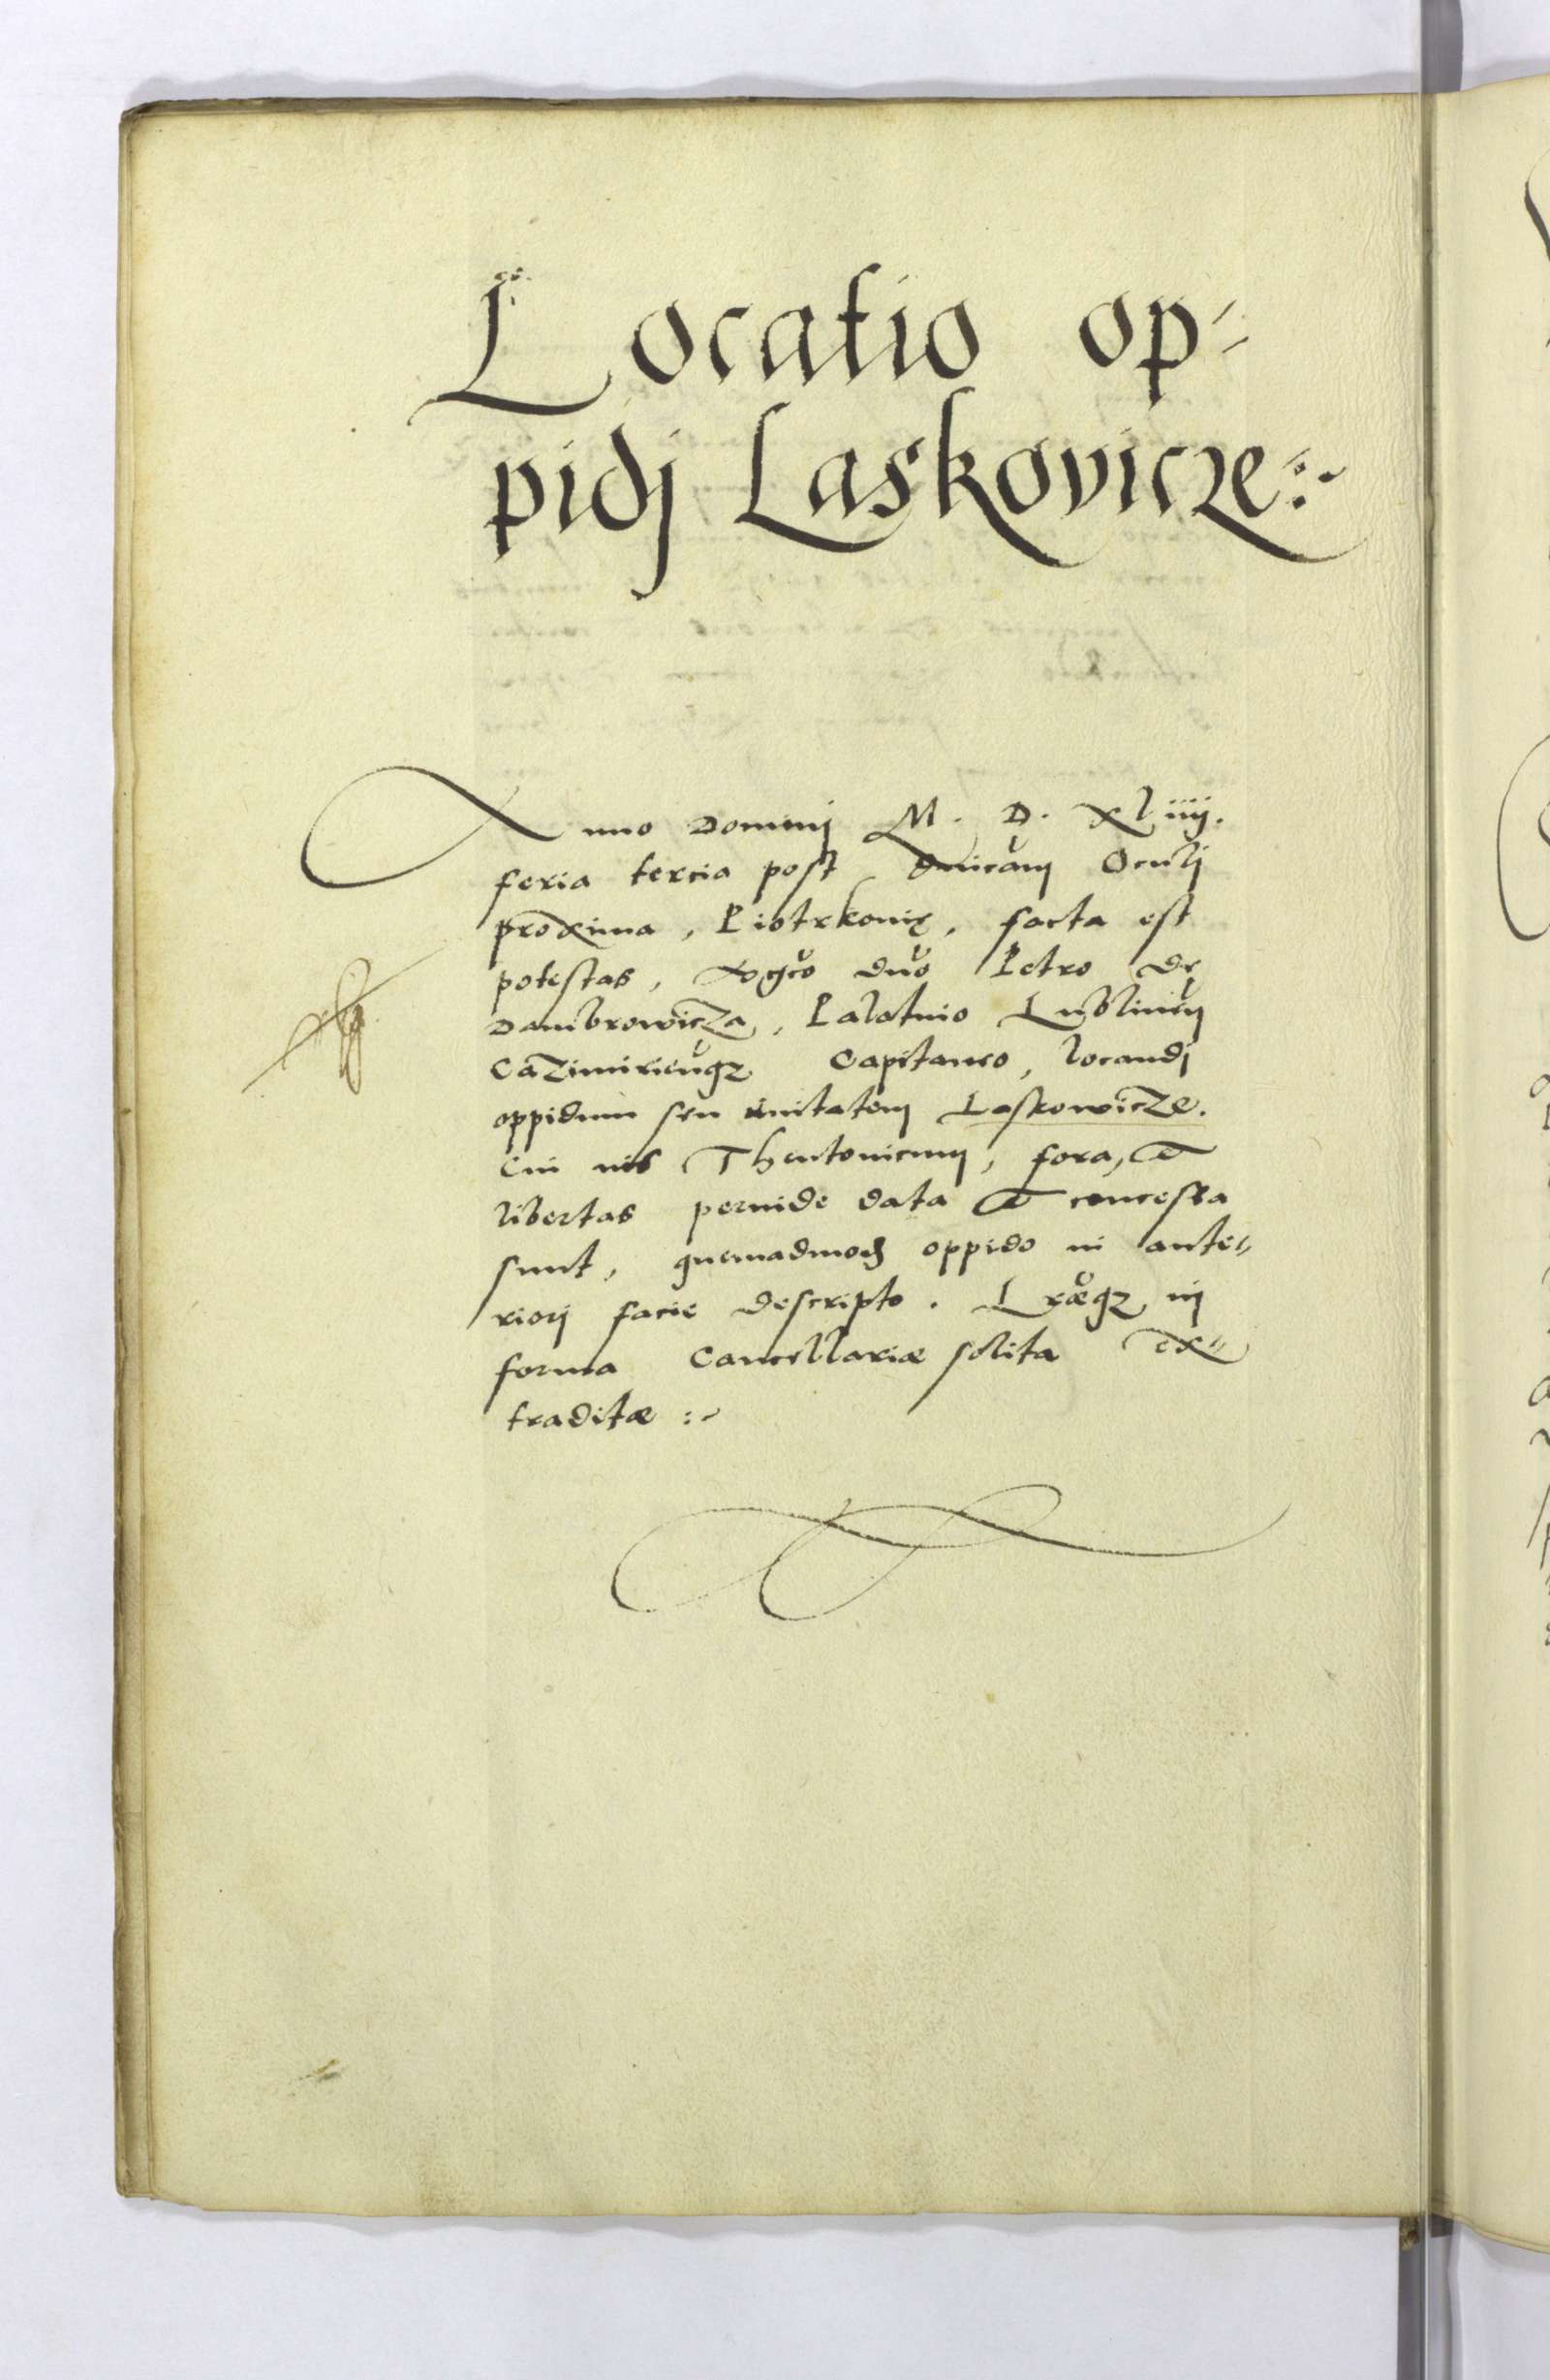 Locatio op-
pidj Laskovicze:~
Anno Dominj M. D. Xl iiij.
feria tercia post dnicam Oculj
proxima, Piotrkovię, facta est
potestas, mgco dno Petro de
Dambrowicza, Palatino Lublinen
Cazimirienqz Capitaneo, locandj
oppidum seu civitatem Laskowicze.
Cui ius Theutonicum, fora, et
libertas perinde data et concessa
sunt, quemadmod oppido in ante=
riorj facie descripto. Lræqz in
forma Cancellariæ solita ex=
traditæ :~